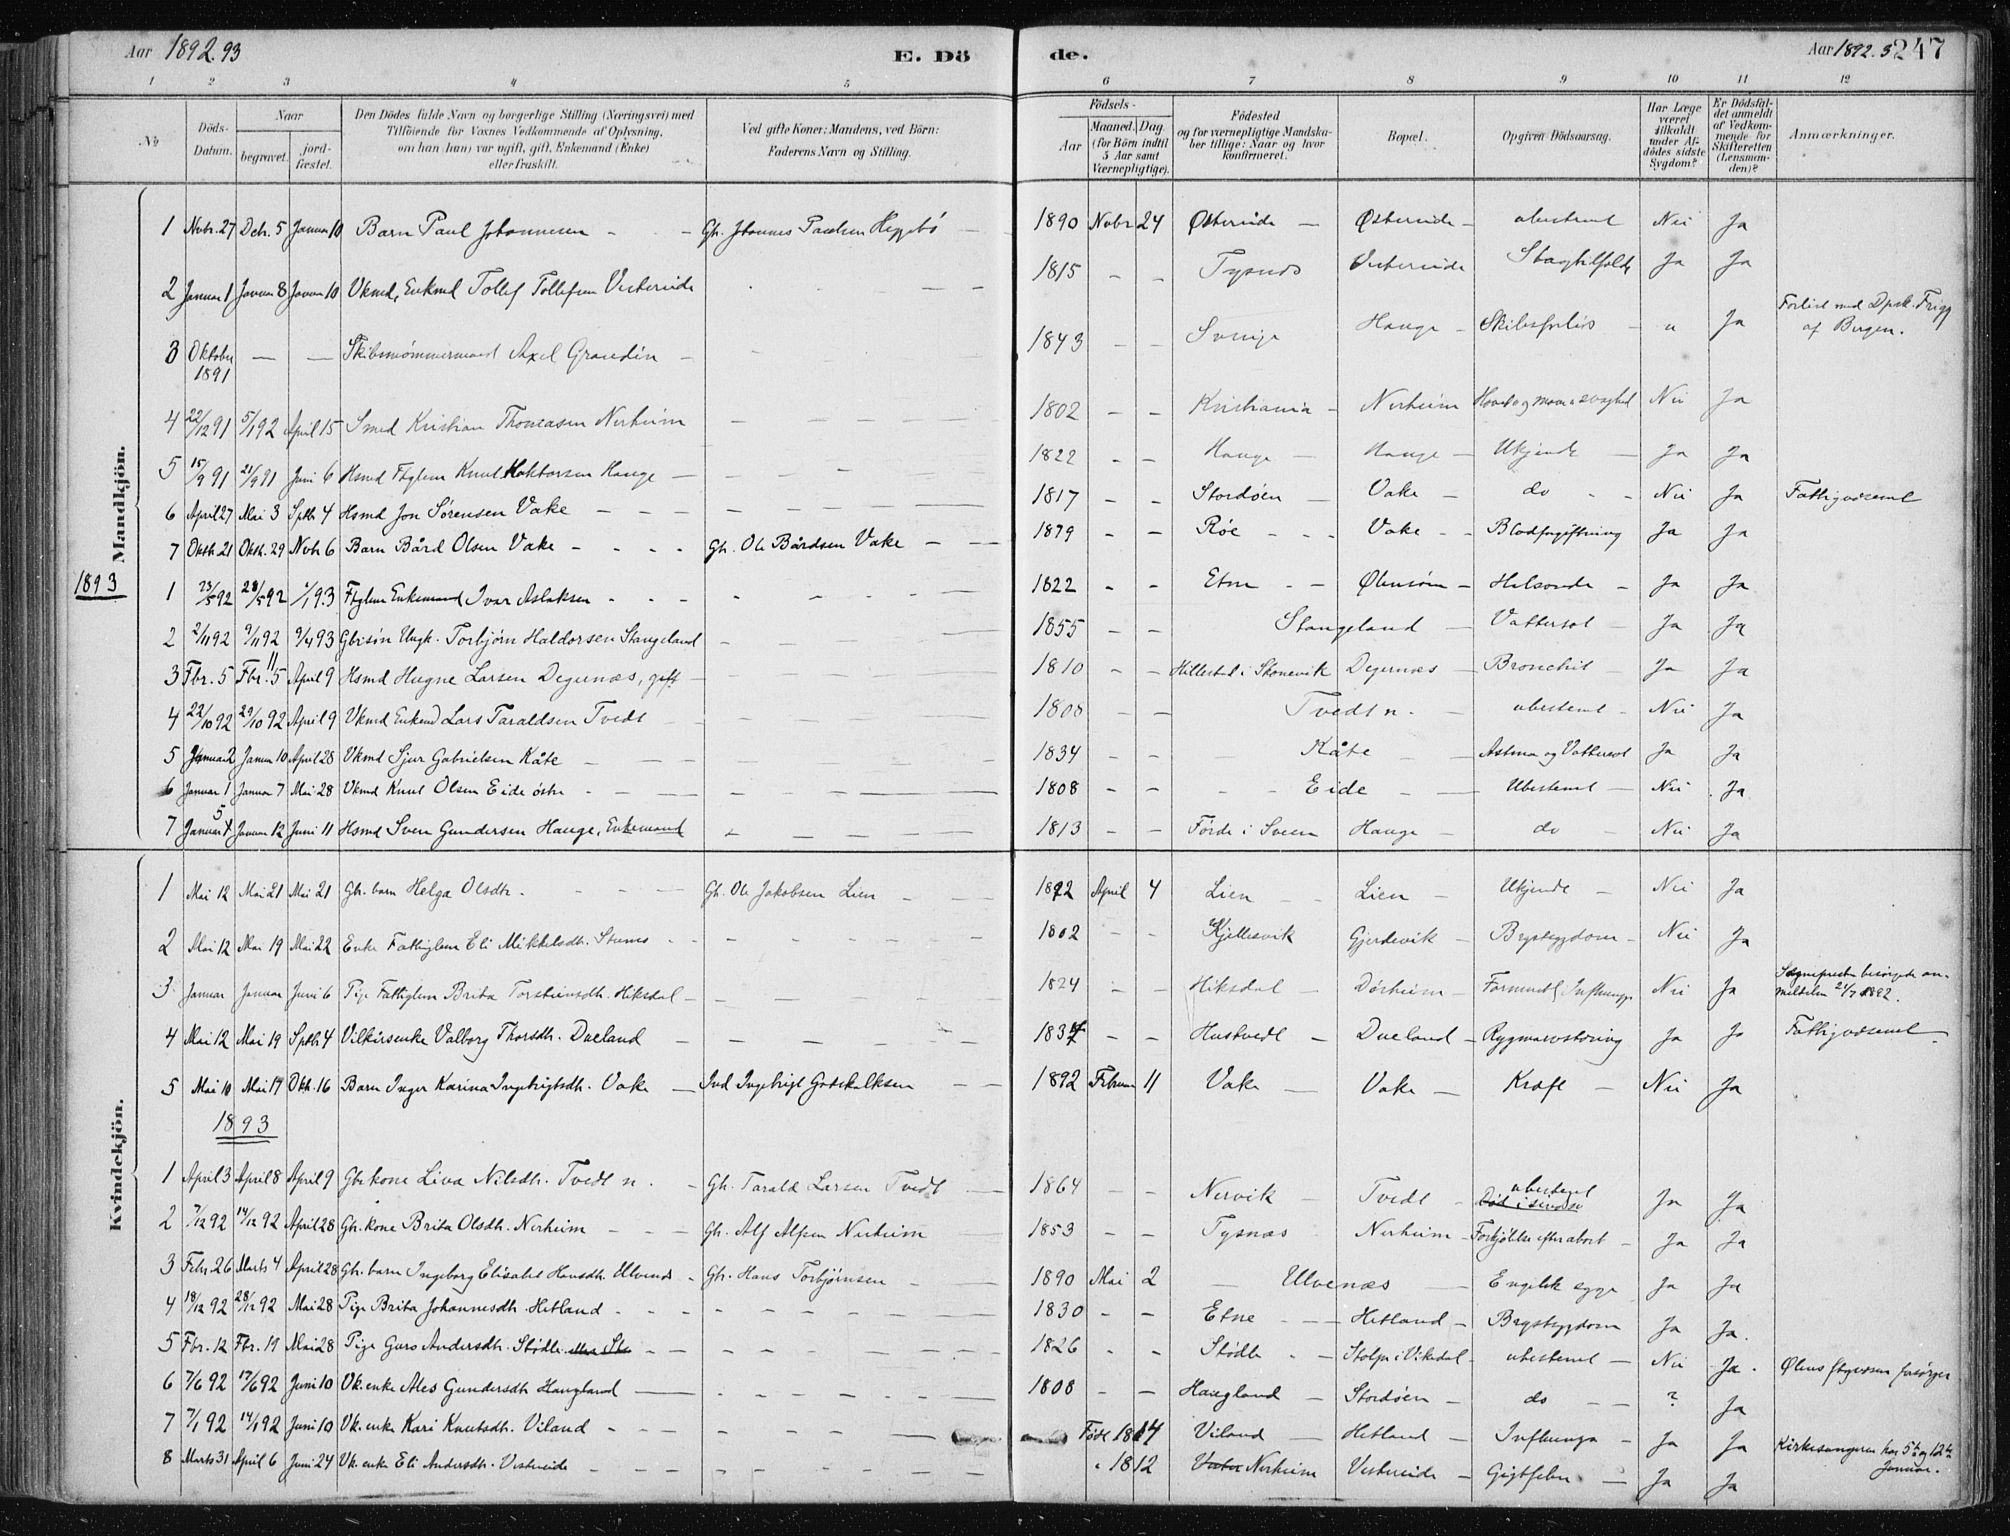 Aar 1892.93 E. Dö de. Aar 1892.3 247
1 2 3 4 5 6 7 8 9 10 11 12
No
Döds-Datum.
Naar
begravet.
jord-fæstet.
Den Dödes fulde Navn og borgerlige Stilling (Næringsvei) med
Tilföiende for Voxnes Vedkommende af Oplysning,
om han (hun) var ugift, gift, Enkemand (Enke)
eller fraskilt.
Ved gifte Koner: Mandens, ved Börn:
Faderens Navn og Stilling.
Födsels-
Aar
Maaned. Dag.
(for Börn indtil
5 Aar samt
Værnepligtige).
Födested
og for værnepligtige Mandska-
ber tillige: Naar og hvor
konfirmeret.
Bopæl.
Opgiven Dödsaarsag.
Har Læge
været
tilkaldt
under Af-
dödes sidste
Sygdom?
Er Dödsfal-
det anmeldt
af Vedkom-
mende for
Skifteretten
(Lensman-
den)?
Anmærkninger.
Mandkjön.
1 Novbr. 27 Dcbr. 5 Januar 10 Barn Paul Johannesen Gb. Johannes Paulsen Heggebø 1890 Novbr 24 Østereide Østereide ubestemt Nei Ja
2 Januar 1 Januar 8 Januar 10 Vkmd, Enkmd Tollef Tollefsen Vestereide 1815 Tysnes Vestereide Slagtilfælde Ja Ja
3 Oktober 1891 Skibstømmermand Axel Grandin 1843 Sverige Hauge Skibsforlis " Ja Forlist med Dpsk. Frigg af Bergen.
4 22/12 91 5/1 92 April 15 Smed Kristian Thomasen Nerheim 1802 Kristiania Nerheim Hoved og mavesvaghed Nei Ja
5 15/9 91 21/9 91 Juni 6 Hsmd Ftglem Knut Haktorsen Hauge 1822 Hauge Hauge Ukjendt Ja Ja
6 April 27 Mai 3 Sptb 4 Hsmd Jon Sørensen Vake 1817 Stordøen Vake do Nei Ja Fattigvæsenet
7 Oktb. 21 Oktb. 29 Novb 6 Barn Bård Olsen Vake Gb. Ole Bårdsen Vake 1879 Røe Vake Blodforgiftning Ja Ja
1893
1 23/5 92 28/5 92 1/1 93 Ftglem Enkemand Ivar Aslaksen 1822 Etne Ølensøen Halsonde Ja Ja
2 2/11 92 9/11 92 9/4 93 Gbrsøn Ungk. Torbjørn Haldorsen Stangeland 1855 Stangeland Vattersot Ja Ja
3 Fbr. 5 Fbr. 11 April 9 Hsmd Hugne Larsen Degernæs, gift 1810 Hillestad i Skonevik Degernæs Bronchit Ja Ja
4 22/10 92 29/10 92 April 9 Vkmd Enkmd Lars Taraldsen Tvedt 1808 Tvedt n. ubestemt Nei Ja
5 Januar 2 Januar 10 April 28 Vkmd Sjur Gabrielsen Kåte 1834 Kåte Astma og Vattersot Ja Ja
6 Januar 1 Januar 7 Mai 28 Vkmd Knut Olsen Eide østre 1808 Eide Ubestemt Nei Ja
7 Januar 5 Januar 12 Juni 11 Hsmd Sven Gundersen Hauge, Enkemand 1813 Førde i Sveen Hauge do Nei Ja
Kvindekjön.
1 Mai 12 Mai 21 Mai 21 Gb. barn Helga Olsdtr. Gb. Ole Jakobsen Lien 1892 April 4 Lien Lien Ukjendt Nei Ja
2 Mai 12 Mai 19 Mai 22 Enke Fattiglem Eli Mikkelsdtr. 1802 Kjellesvik Gjerdevik Brystsygdom Nei Ja
3 Januar Januar Juni 6 Pige Fattiglem Brita Torsteinsdtr. Hiksdal 1824 Hiksdal Dørheim Forment. Influenza Nei Ja Sognepresten besørgede anmeldelsen 21/7 1892.
4 Mai 12 Mai 19 Sptb 4 Vilkårsenke Valborg Thorsdtr. Dueland 1837 Hustvedt Dueland Rygmarvstæring Ja Ja Fattigvæsenet
5 Mai 10 Mai 17 Okt. 16 Barn Inger Karina Ingebrigtsdtr. Vake Ind Ingebrigt Gotskalksen 1892 Februar 11 Vake Vake Kræft Nei Ja
1893
1 April 3 April 8 April 9 Gbr kone Liva Nilsdtr. Tvedt n. Gb. Tarald Larsen Tvedt 1864 Nervik Tvedt ubestemt Ja Ja
2 7/12 92 14/12 92 April 28 Gb. kone Brita Olsdtr. Nerheim Gb. Alf Alfsen Nerheim 1853 Tysnæs Nerheim Forkjølelse efter abort Ja Ja
3 Febr. 26 Marts 4 April 28 Gb. barn Ingeborg Elisabet Hansdtr. Ulvenæs Gb. Hans Torbjørnsen 1890 Mai 2 Ulvenæs Engelsk syge Ja Ja
4 18/12 92 28/12 92 Mai 28 Pige Brita Johannesdtr. Hetland 1830 Etne Hetland Brystsygdom Ja Ja.
5 Fbr. 12 Fbr. 19 Mai 28 Pige Guro Andersdtr. Stødle 1826 Stødle Stolpe i Vikedal ubestemt Nei Ja. Ølens ftgvæsen forsørger
6 7/6 92 17/6 92 Juni 10 Vk. enke Ales Gundersdtr Haugland 1808 Haugland Stordøen do ? Ja
7 7/1 92 14/1 92 Juni 10 Vk. enke Kari Knutsdtr. Viland Født 1814 Viland Hetland Influenza Ja Ja
8 Marts 31 April 6 Juni 24 Vk. enke Eli Andersdtr. Vestereide " 1812 Nerheim Vestereide Gigtfeber Ja Ja Kirkesangeren har 5te og 12te Januar.